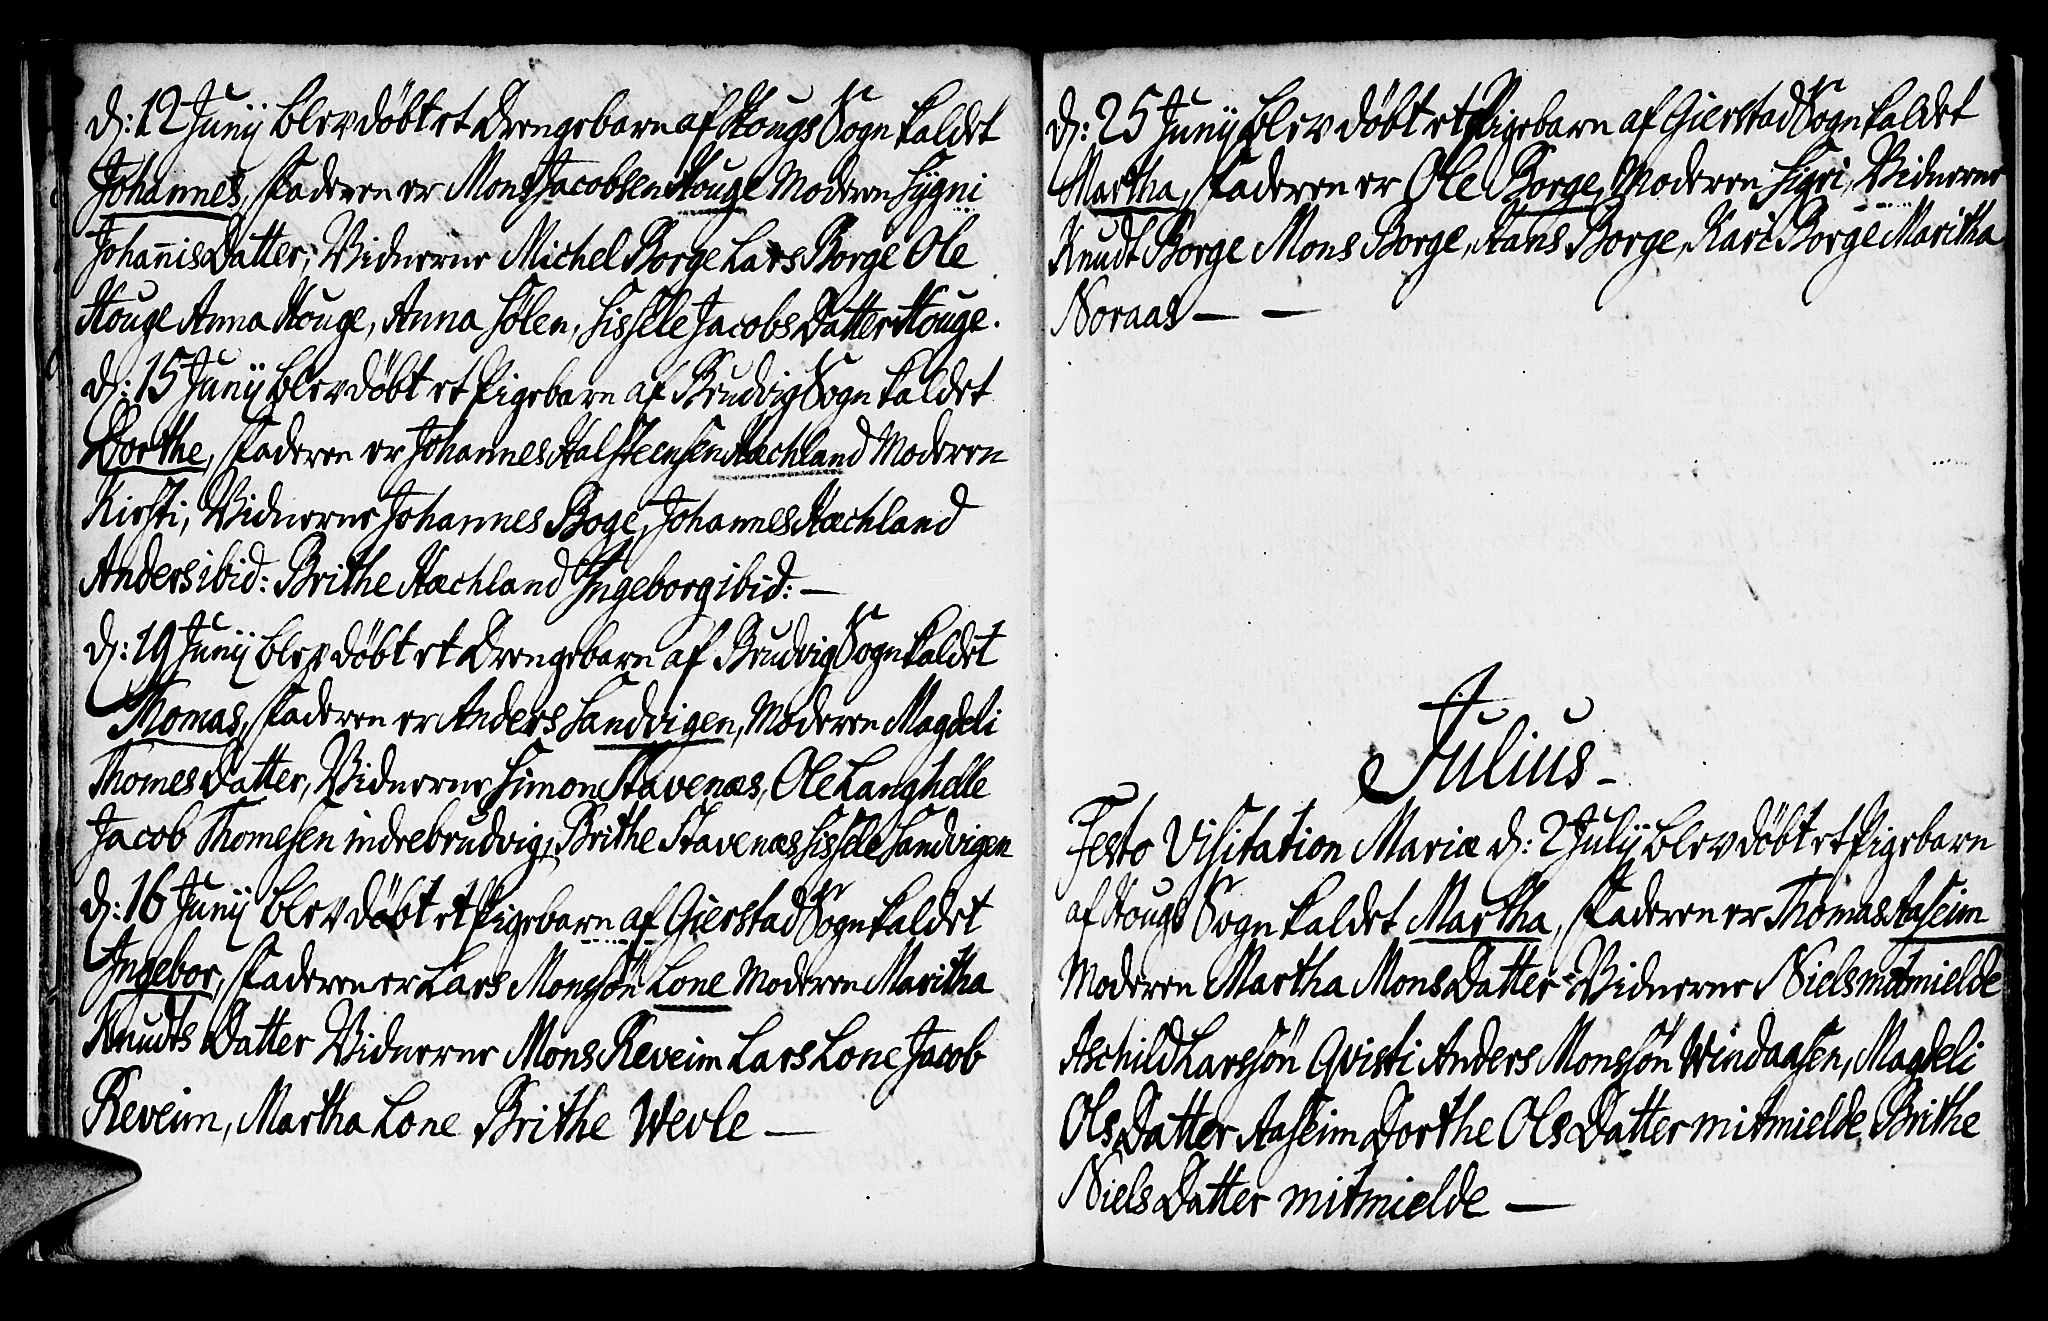 d: 12 Junij blev döbt et Drengebarn af Hougs Sogn kaldet
Johannes, Faderen er Mons Jacobsen Houge Moderen Sygni
Johanis Datter, Vidnerne Michel Borge Lars Borge Ole
Houge Anna Houge, Anna Sølen, Sissele Jacobs Datter Houge.
d: 15 Junij blev döbt et Pigebarn af Brudvig Sogn kaldet
Dorthe, Faderen er Johannes Halsteensen Hæchland Moderen
Kirsti, Vidnerne Johannes Boge, Johannes Hæchland
Anders ibid: Brithe Hæchland Ingeborg ibid: —
d: 19 Junij blev döbt et Drengebarn af Brudvig Sogn kaldet
Thomas, Faderen er Anders Sandvigen, Moderen Magdeli
Thomes Datter, Vidnerne Simon Stavenæs, Ole Langhelle
Jacob Thomesen indrebrudvig, Brithe Stavenæs Sissele Sandvigen
d: 16 Junij blev döbt et Pigebarn af Gierstad Sogn kaldet
Ingebor, Faderen er Lars Monssön Lone Moderen Maritha
Knudts Datter Vidnerne Mons Reveim Lars Lone Jacob
Reveim, Martha Lone Brithe Wevle —
d: 25 Junij blev döbt et Pigebarn af Gierstad Sogn kaldet
Martha, Faderen er Ole Borge, Moderen Sigri, Vidnerne
Knudt Borge Mons Borge, Hans Borge, Kari Borge Maritha
Noraas — —
Julius —
Festo Visitation Mariæ d: 2 Julij blev döbt et Pigebarn
af Hougs Sogn kaldet Martha, Faderen er Thomas Aaseim
Moderen Martha Mons Datter Vidnerne Niels mitmielde
Aschild Larssön Qvisti Anders Monssön Windaasen, Magdeli
Ols Datter Aaseim Dorthe Ols Datter mitmielde, Brithe
Niels Datter mitmielde —